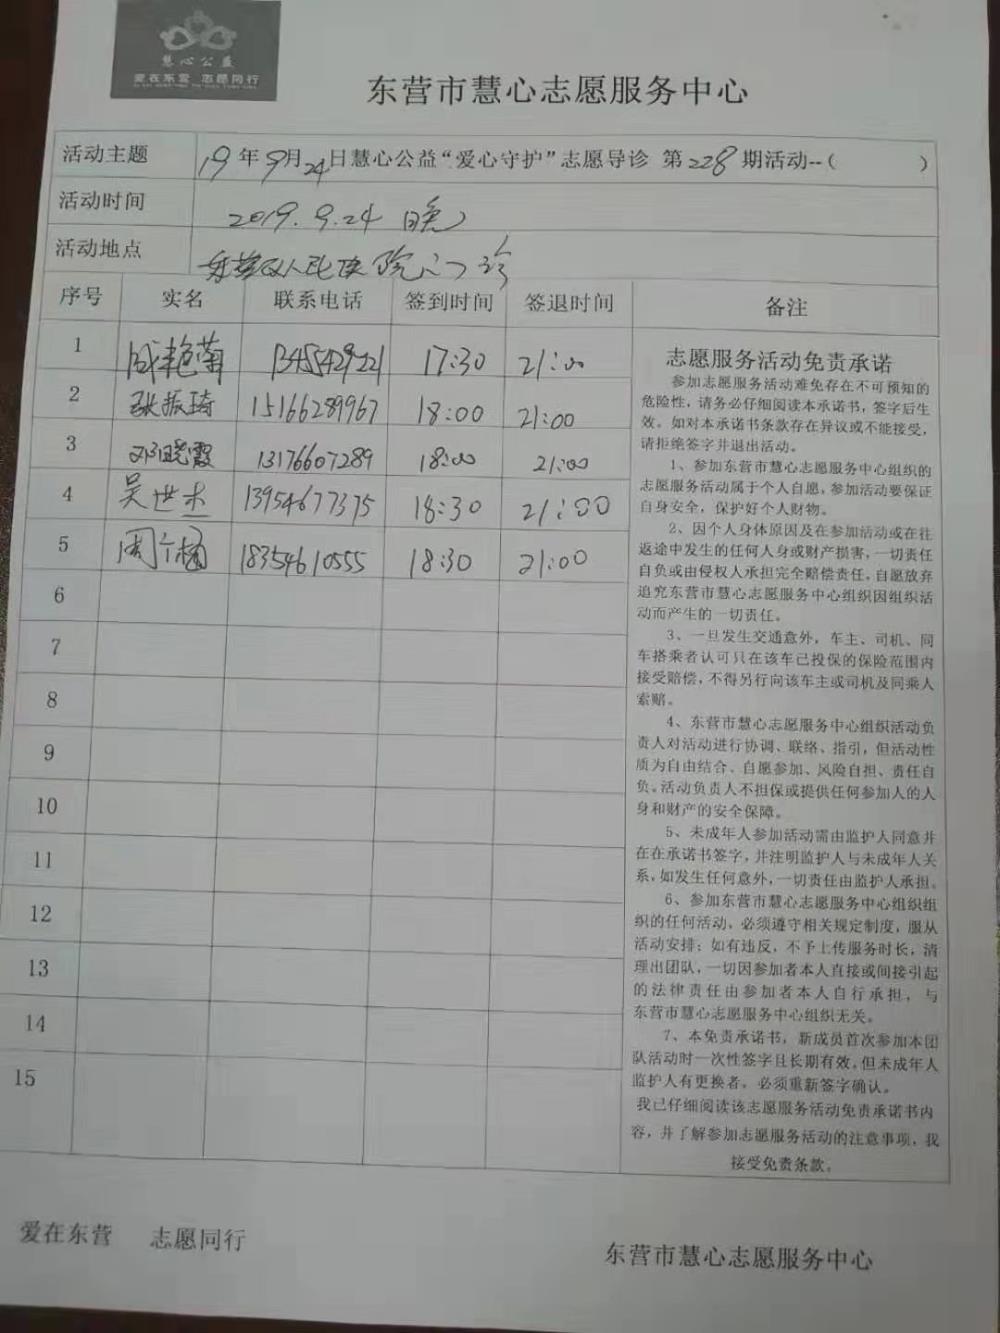 慧心公益
爱在东营 志愿同行
东营市慧心志愿服务中心
活动主题 19年9月24日慧心公益“爱心守护”志愿导诊 第228期活动--( )
活动时间 2019.9.24 晚
活动地点 东营区人民医院门诊
序号 实名 联系电话 签到时间 签退时间 备注
1 成艳菊 13455429221 17:30 21:00
2 张振琦 15166289967 18:00 21:00
3 邓晓霞 13176607289 18:00 21:00
4 吴世杰 13954677375 18:30 21:00
5 周 18354610555 18:30 21:00
6
7
8
9
10
11
12
13
14
15
志愿服务活动免责承诺
参加志愿服务活动难免存在不可预知的
危险性，请务必仔细阅读本承诺书，签字后生
效。如对本承诺书条款存在异议或不能接受，
请拒绝签字并退出活动。
1、参加东营市慧心志愿服务中心组织的
志愿服务活动属于个人自愿，参加活动要保证
自身安全，保护好个人财物。
2、因个人身体原因及在参加活动或在往
返途中发生的任何人身或财产损害，一切责任
自负或由侵权人承担完全赔偿责任，自愿放弃
追究东营市慧心志愿服务中心组织因组织活
动而产生的一切责任。
3、一旦发生交通意外，车主、司机、同
车搭乘者认可只在该车已投保的保险范围内
接受赔偿，不得另行向该车主或司机及同乘人
索赔。
4、东营市慧心志愿服务中心组织活动负
责人对活动进行协调、联络、指引，但活动性
质为自由结合、自愿参加、风险自担、责任自
负。活动负责人不担保或提供任何参加人的人
身和财产的安全保障。
5、未成年人参加活动需由监护人同意并
在在承诺书签字，并注明监护人与未成年人关
系，如发生任何意外，一切责任由监护人承担。
6、参加东营市慧心志愿服务中心组织组
织的任何活动、必须遵守相关规定制度，服从
活动安排；如有违反，不予上传服务时长，清
理出团队，一切因参加者本人直接或间接引起
的法律责任由参加者本人自行承担，与
东营市慧心志愿服务中心组织无关。
7、本免责承诺书，新成员首次参加本团
队活动时一次性签字且长期有效。但未成年人
监护人有更换者，必须重新签字确认。
我已仔细阅读该志愿服务活动免责承诺书内
容，并了解参加志愿服务活动的注意事项，我
接受免责条款。
爱在东营 志愿同行
东营市慧心志愿服务中心